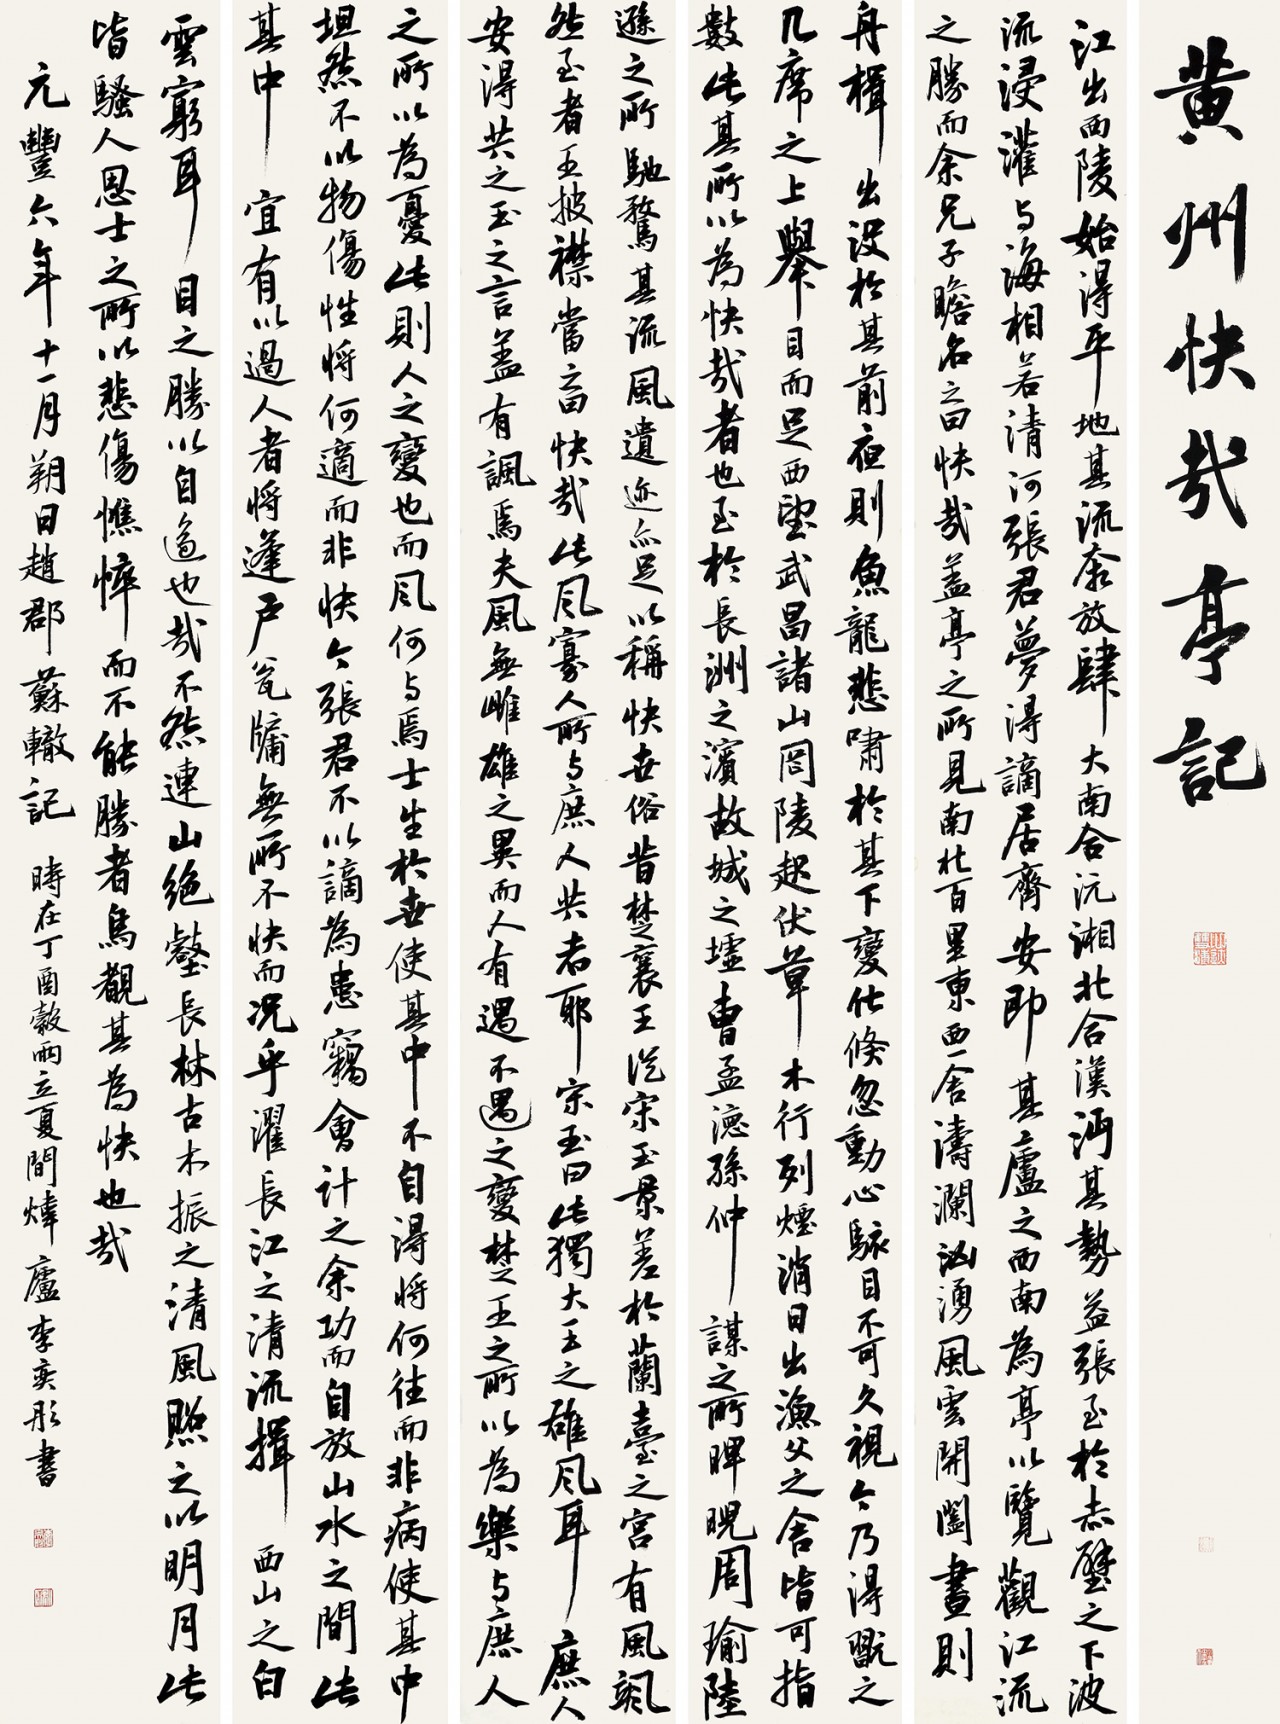 黄州快哉亭記
江出西陵始得平地其流奔放肆大南合沅湘北合漢沔其勢益張至於赤壁之下波
流浸灌与海相若清河張君夢得謫居齊安即其廬之西南為亭以覽觀江流
之勝而余兄子瞻名之曰快哉蓋亭之所見南北百里東西一舍濤瀾洶湧風雲開闔晝則
舟楫出没於其前夜則魚龍悲嘯於其下變化倏忽動心駭目不可久視今乃得翫之
几席之上舉目而足西望武昌諸山岡陵起伏草木行列煙消日出漁父之舍皆可指
數此其所以為快哉者也至於長洲之濱故城之墟曹孟德孫仲謀之所睥睨周瑜陸
遜之所馳騖其流風遺迹亦足以稱快世俗昔楚襄王從宋玉景差於蘭臺之宮有風颯
然至者王披襟當之曰快哉此風寡人所与庶人共者耶宋玉曰此獨大王之雄風耳庶人
安得共之玉之言蓋有諷焉夫風無雌雄之異而人有遇不遇之變楚王之所以為樂与庶人
之所以為憂此則人之變也而風何与焉士生於世使其中不自得將何往而非病使其中
坦然不以物傷性將何適而非快今張君不以謫為患竊會計之余功而自放山水之間此
其中宜有以過人者將蓬戶瓮牖無所不快而況乎濯長江之清流揖西山之白
雲窮耳目之勝以自適也哉不然連山絕壑長林古木振之清風照之以明月此
皆騷人思士之所以悲傷憔悴而不能勝者烏覩其為快也哉
元豐六年十一月朔日趙郡蘇轍記 時在丁酉穀雨立夏間煒廬李奕彤書